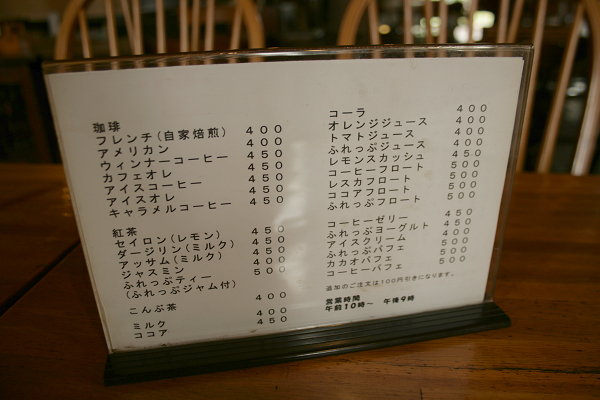 珈琲
フレンチ(自家焙煎) 400
アメリカン 400
ウィンナーコーヒー 450
カフェオレ 450
アイスコーヒー 450
アイスオレ 450
キャラメルコーヒー 450
紅茶
セイロン(レモン) 450
ダージリン(ミルク) 450
アッサム(ミルク) 450
ジャスミン 400
ふれっぷティー 500
(ふれっぷジャム付)
こんぶ茶 400
ミルク 400
ココア 450
コーラ 400
オレンジジュース 400
トマトジュース 400
ふれっぷジュース 400
レモンスカッシュ 450
コーヒーフロート 500
レスカフロート 500
ココアフロート 500
ふれっぷフロート 500
コーヒーゼリー 450
ふれっぷヨーグルト 450
アイスクリーム 400
ふれっぷパフェ 500
カカオパフェ 500
コーヒーパフェ 500
追加のご注文は100円引きになります。
営業時間
午前10時〜 午後9時